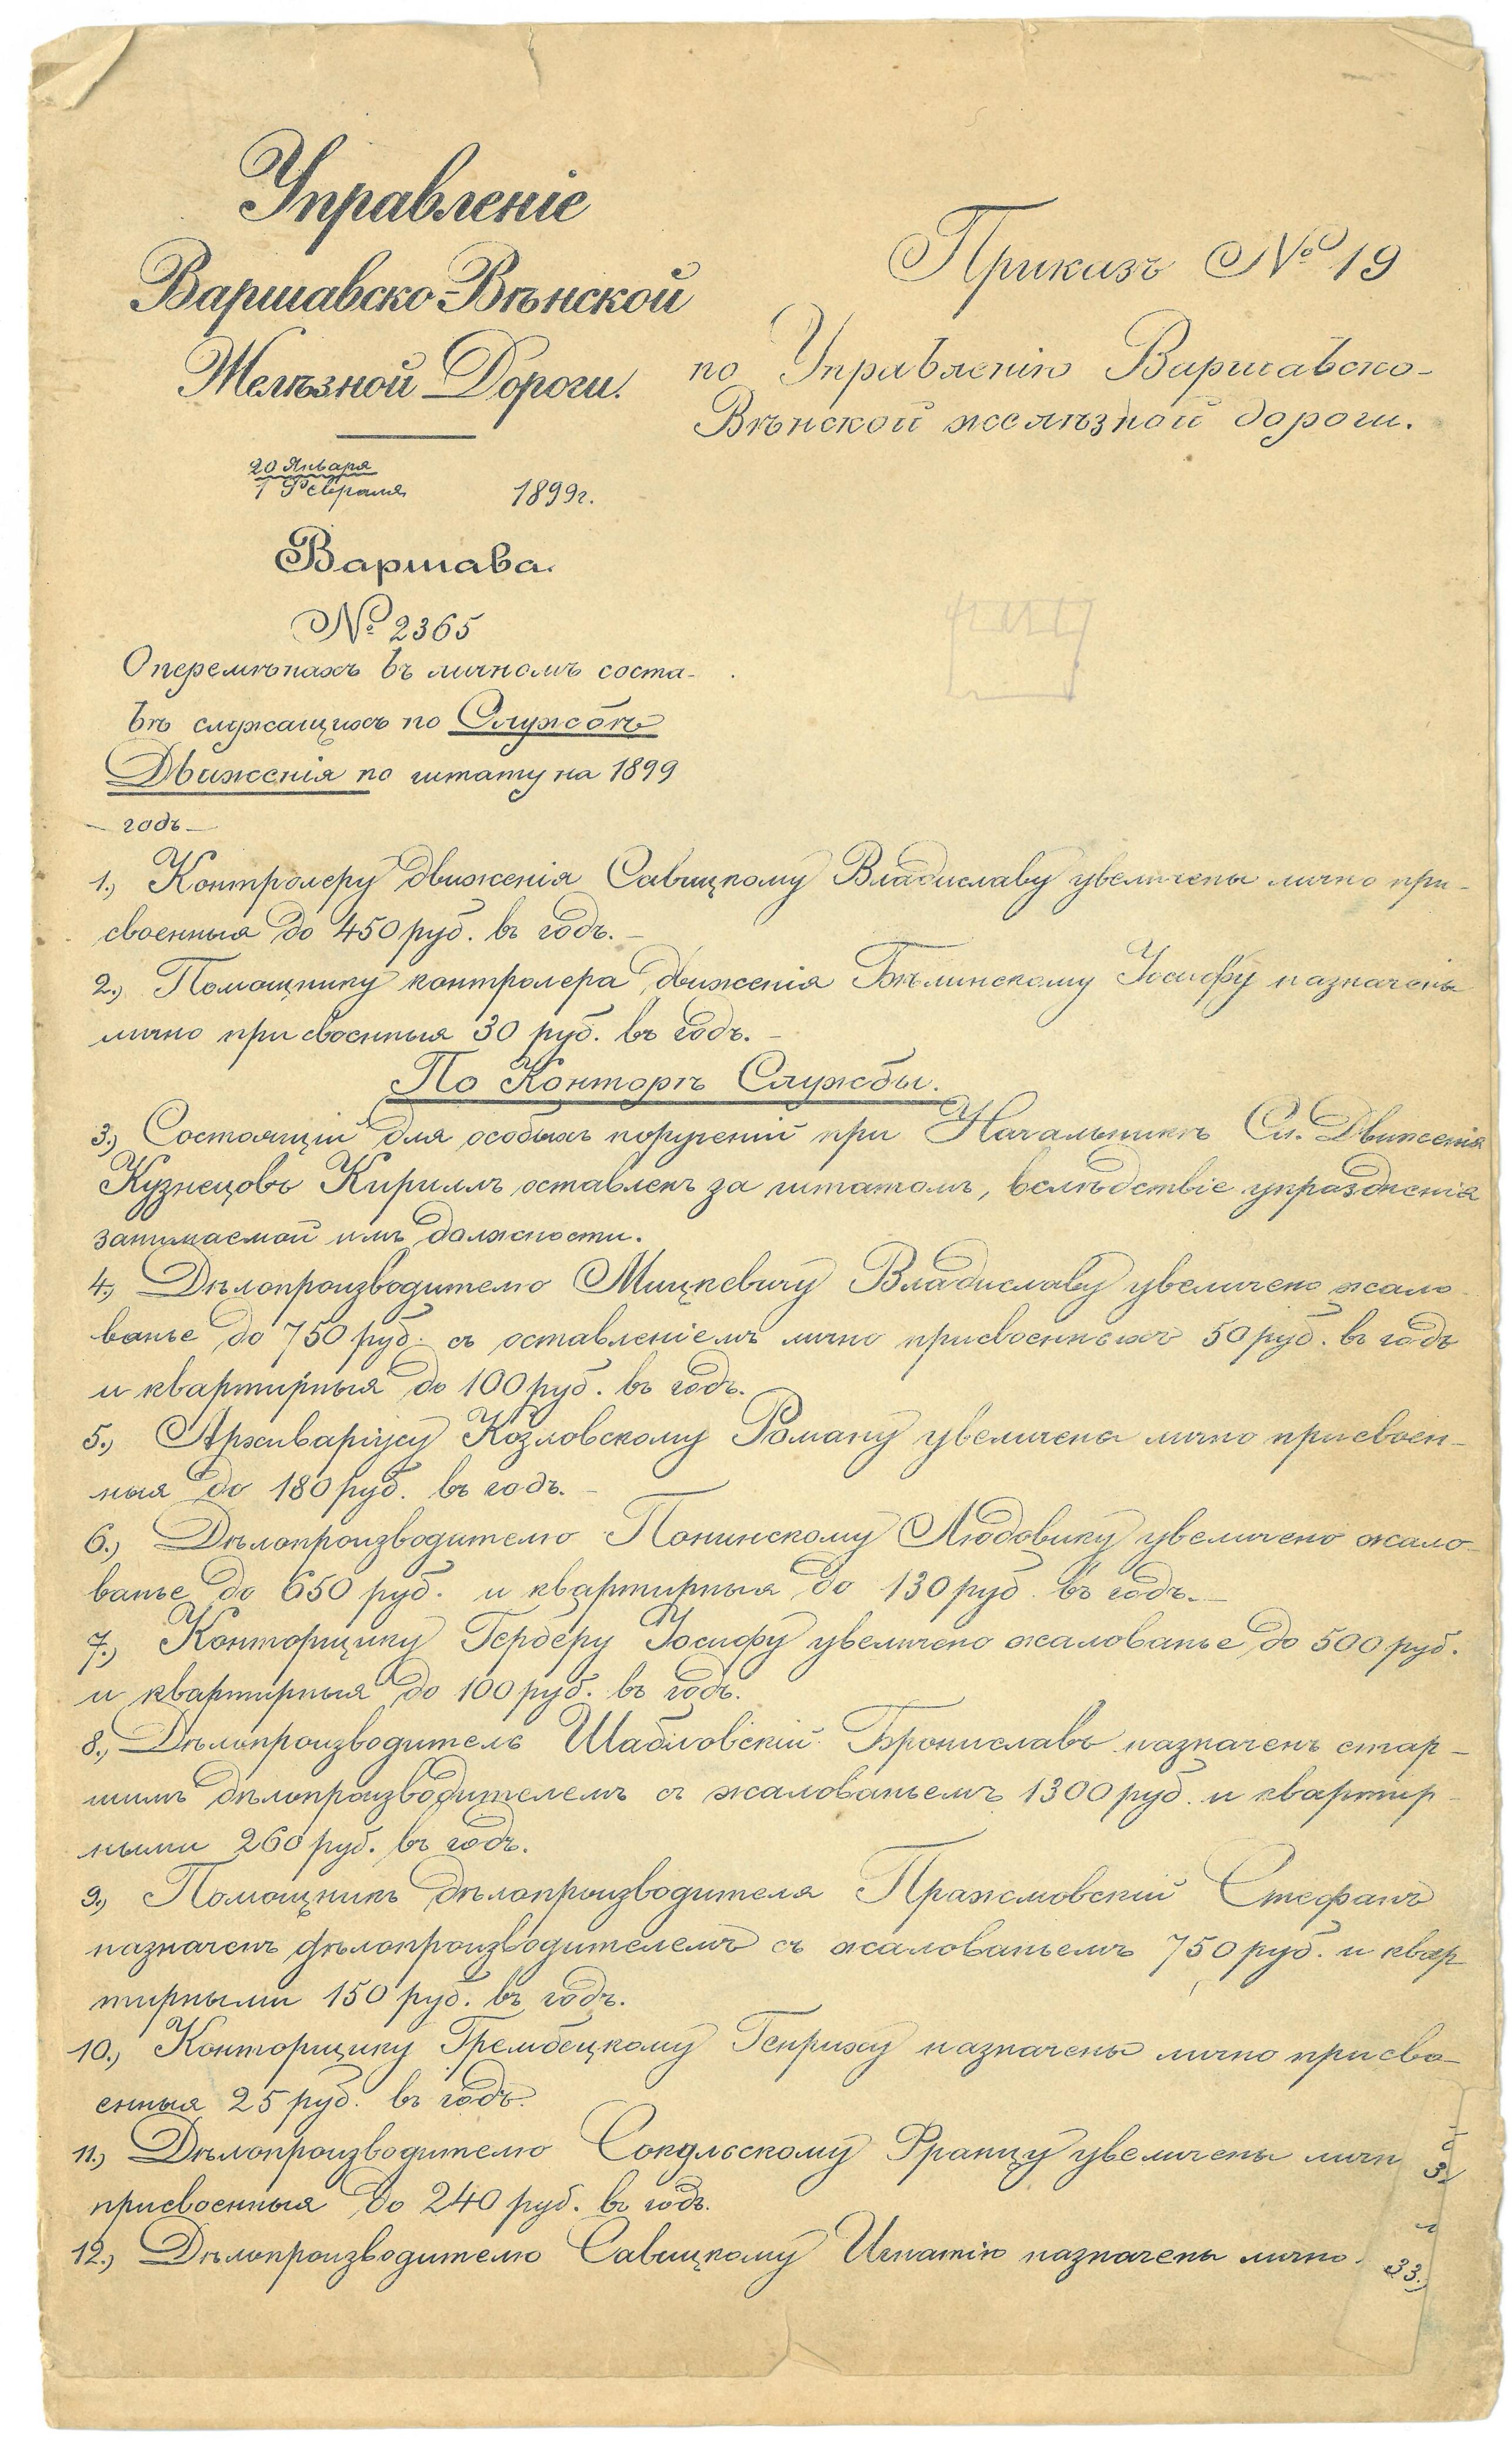 Управленіе
Варшавско-Вѣнской
Желѣзной Дороги.
20 Января
1 Февраля 1899г.
Варшава.
№ 2365
О перемѣнахъ въ личномъ соста-
вѣ служащихъ по Службѣ
Движенія по штату на 1899
годъ
Приказъ № 19
по Управленію Варшавско-
Вѣнской желѣзной дороги.
1.) Контролеру движенія Савицкому Владиславу увеличены лично при-
своенныя до 450 руб. въ годъ.
2.) Помощнику контролера движенія Бѣлинскому Іосифу назначены
лично присвоенныя 30 руб. въ годъ.
По Конторѣ Службы.
3.) Состоящій для особыхъ порученій при Начальникѣ Сл. Движенія
Кузнецовъ Кириллъ оставленъ за штатомъ, вслѣдствіе упраздненія
занимаемой имъ должности.
4.) Дѣлопроизводителю Мицкевичу Владиславу увеличено жало-
ванье до 750 руб. съ оставленіемъ лично присвоенныхъ 50 руб. въ годъ
и квартирныя до 100 руб. въ годъ.
5.) Архиваріусу Козловскому Роману увеличены лично присвоен-
ныя до 180 руб. въ годъ.
6.) Дѣлопроизводителю Понинскому Людовику увеличено жало-
ванье до 650 руб. и квартирныя до 130 руб. въ годъ.
7.) Конторщику Герберу Іосифу увеличено жалованье до 500 руб.
и квартирныя до 100 руб. въ годъ.
8.) Дѣлопроизводитель Шабловскій Брониславъ назначенъ стар-
шимъ дѣлопроизводителемъ съ жалованьемъ 1300 руб. и квартир-
ными 260 руб. въ годъ.
9.) Помощникъ дѣлопроизводителя Пражмовскій Стефанъ
назначенъ дѣлопроизводителемъ съ жалованьемъ 750 руб. и квар
тирными 150 руб. въ годъ.
10.) Конторщику Грембецкому Генриху назначены лично присво-
енныя 25 руб. въ годъ.
11.) Дѣлопроизводителю Сокульскому Францу увеличены личн
присвоенныя до 240 руб. въ годъ.
12.) Дѣлопроизводителю Савицкому Игнатію назначены лично
33.)